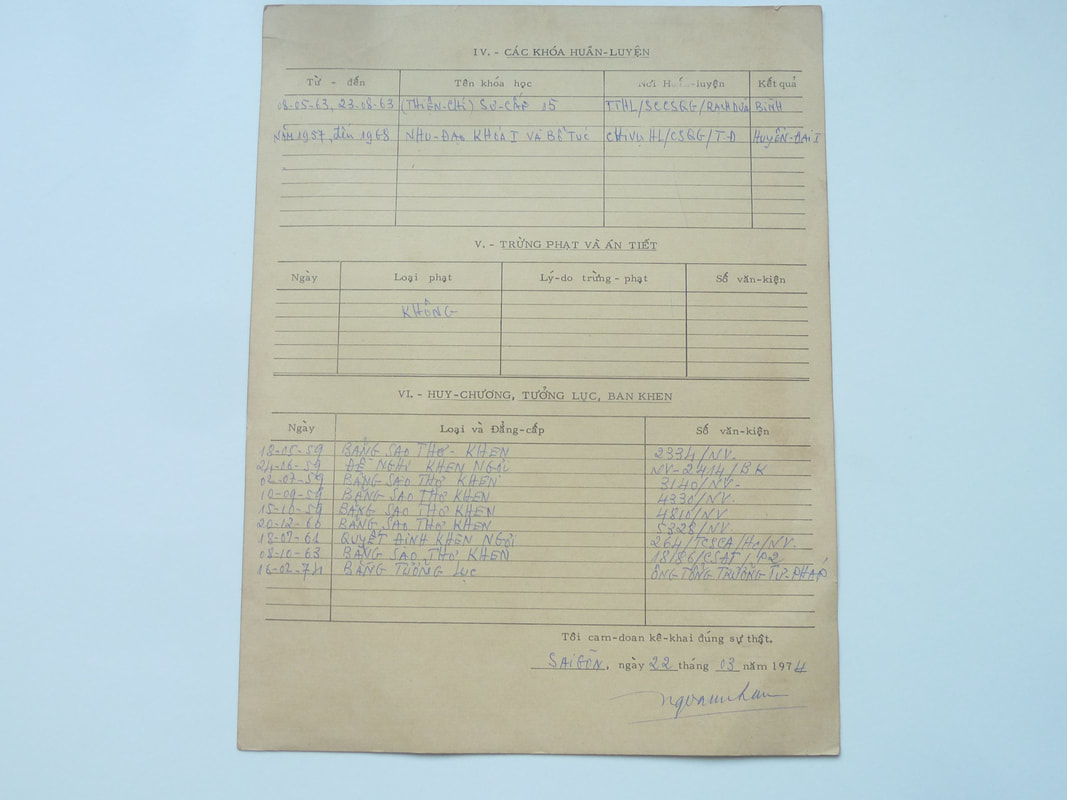 IV. - CÁC KHÓA HUẤN-LUYỆN
Từ - đến Tên khóa học Nơi Huấn-luyện Kết quả
08-05-63, 23-08-63 (THIỆN-CHÍ) SƠ-CẤP 05 TTHL/SCCSQG/RẠCHDỪA BÌNH
NĂM 1957, đến 1968 NHU-ĐẠO KHÓA I VÀ BỔ TÚC CHIVỤ HL/CSQG/T-Đ HUYỀN-ĐAI I
V. - TRỪNG PHẠT VÀ ÁN TIẾT
Ngày Loại phạt Lý-do trừng - phạt Số văn-kiện
KHÔNG
VI. - HUY-CHƯƠNG, TƯỞNG LỤC, BAN KHEN
Ngày Loại và Đẳng-cấp Số văn-kiện
18-05-59 BẰNG SAO THƠ - KHEN 2334/NV-
24-06-59 ĐỀ NGHỊ KHEN NGỢI NV-2414/BK
02-07-59 BẰNG SAO THƠ KHEN 3140/NV-
10-09-59 BẰNG SAO THƠ KHEN 4330/NV-
15-10-59 BẰNG SAO THƠ KHEN 4810/NV
20-12-60 BẰNG SAO THƠ KHEN 5328/NV
18-07-61 QUYẾT ĐỊNH KHEN NGỢI 264/TCSCA/HC/NV-
08-10-63 BẰNG SAO THƠ KHEN 1886/CSAT/P2
16-02-74 BẰNG TƯỞNG LỤC ÔNG TỔNG TRƯỞNG TƯ-PHÁP
Tôi cam-đoan kê-khai đúng sự thật.
SAIGÒN, ngày 22 tháng 03 năm 1974